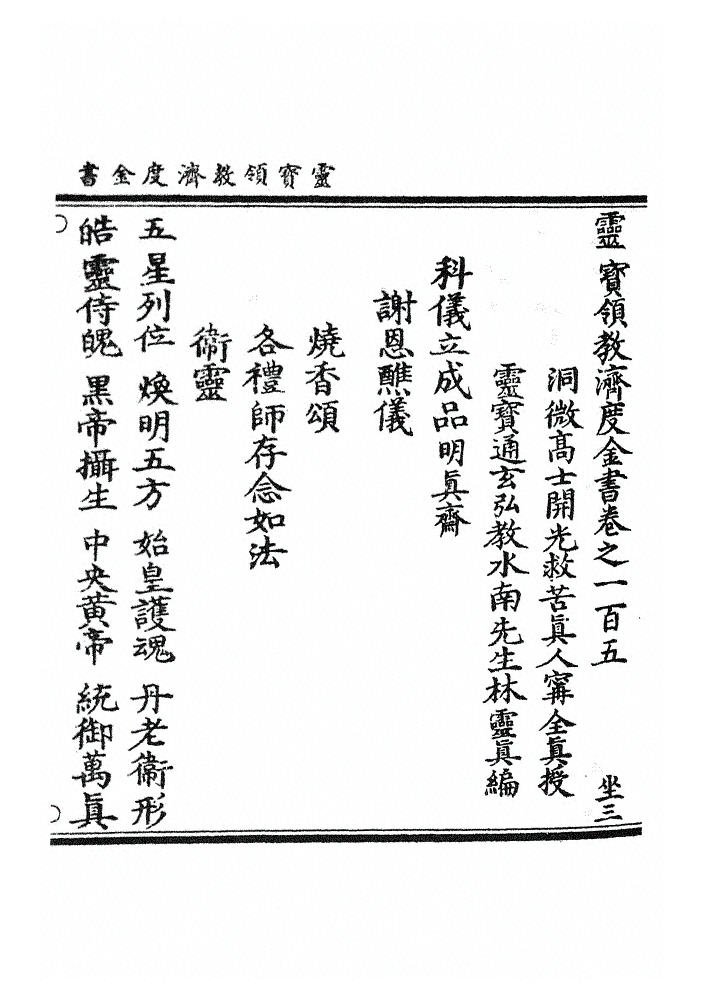 靈寶領教濟度金書
靈寶領教濟度金書卷之一百五　坐三
洞微高士開光救苦眞人甯全眞授
靈寶通玄弘教水南先生林靈眞編
科儀立成品明眞齋
謝恩醮儀
燒香頌
各禮師存念如法
衞靈
五星列位　煥明五方　始皇護魂　丹老衞形
皓靈侍魄　黑帝攝生　中央黃帝　統御萬眞